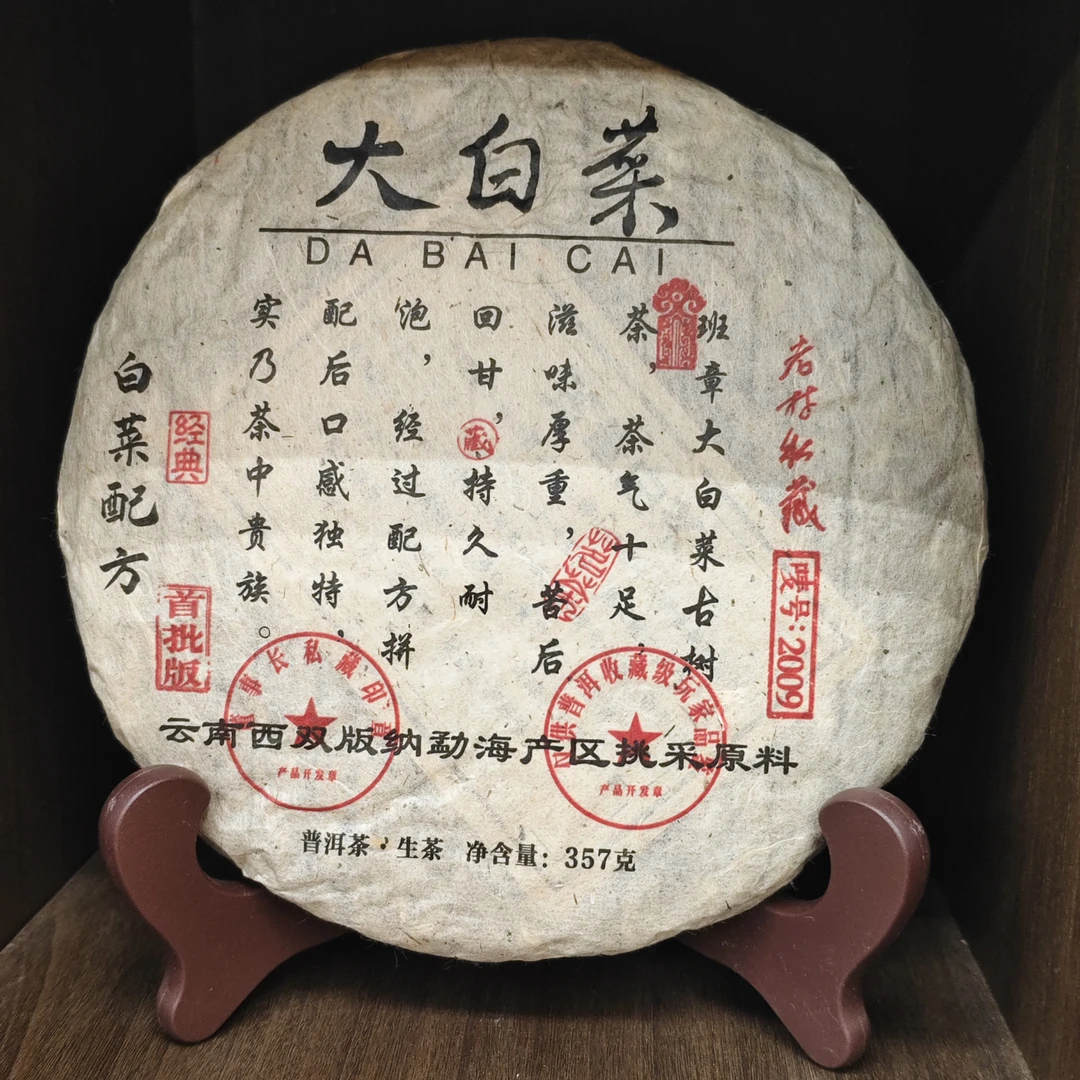 大白菜
DA BAI CAI
老树私藏
唛号：2009
班章大白菜古树
茶，茶气十足，
滋味厚重，苦后
回甘，持久耐
藏
泡，经过配方拼
配后口感独特，
实乃茶中贵族。
白菜配方
经典
首批版
董事长私藏印章
产品开发章
供普洱收藏级玩家品鉴
产品开发章
云南西双版纳勐海产区挑采原料
普洱茶·生茶 净含量：357克